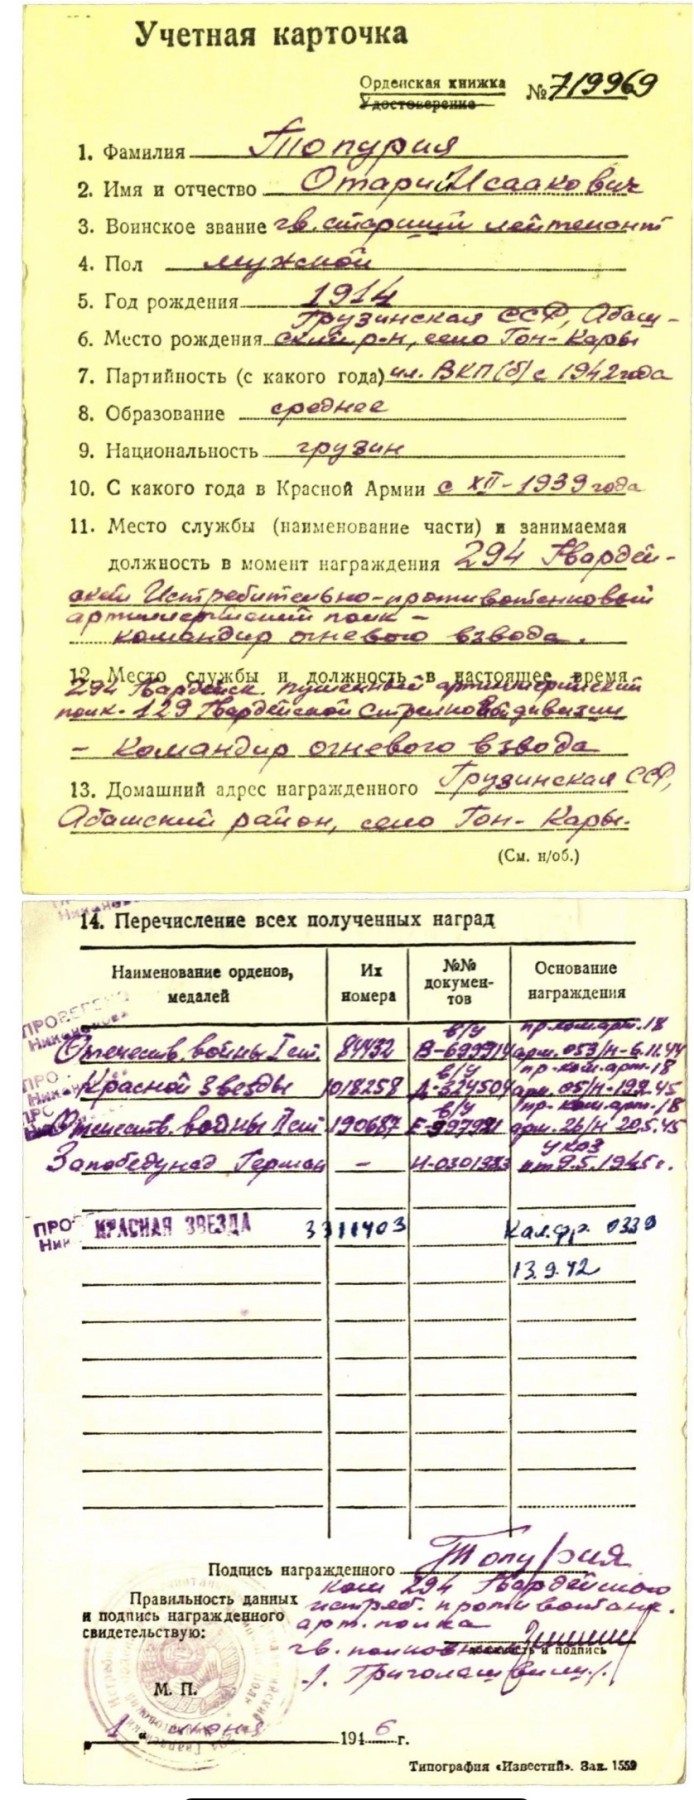 Учетная карточка
Орденская книжка
Удостоверение
№ 719969
1. Фамилия Топурия
2. Имя и отчество Отари Исаакович
3. Воинское звание гв. старший лейтенант
4. Пол мужской
5. Год рождения 1914
Грузинская ССР, Абаш-
6. Место рождения ский р-н, село Гон-Кары
7. Партийность (с какого года) чл. ВКП(б) с 1942 года
8. Образование среднее
9. Национальность грузин
10. С какого года в Красной Армии с XII-1939 года
11. Место службы (наименование части) и занимаемая
должность в момент награждения 294 Гвардей-
ский Истребительно-противотанковый
артиллерийский полк -
командир огневого взвода.
12. Место службы и должность в настоящее время
294 Гвардейск. пушечный артиллерийский
полк - 129 Гвардейской Стрелковой дивизии
- командир огневого взвода
13. Домашний адрес награжденного Грузинская ССР,
Абашский район, село Гон-Кары.
(См. н/об.)
14. Перечисление всех полученных наград
Наименование орденов, медалей
Их номера
№№ документов
Основание награждения
ПРОВЕРЕНО
Отечеств. войны I ст. 84432 в/у В-699914 пр. ком. арт. 18 арм. 053/н-6.11.44
Красной Звезды 1018258 в/у Д-324504 пр-ком. арт-18 арм. 05/н-19.2.45
Отечеств. войны II ст 190687 в/у пр-ком. арт-18 арм. 26/н 20.5.45
За победу над Герман - указ от 9.5.1945 г.
КРАСНАЯ ЗВЕЗДА 3311403 Кал.фр. 0330
13.9.42
Подпись награжденного Топурия
Правильность данных
и подпись награжденного
свидетельствую:
ком 294 Гвардейского
истреб. противотанк.
арт. полка
гв. полковник
должность и подпись
/. Григолашвили./
М. П.
"1" июня 1946 г.
Типография «Известий». Зак. 1559